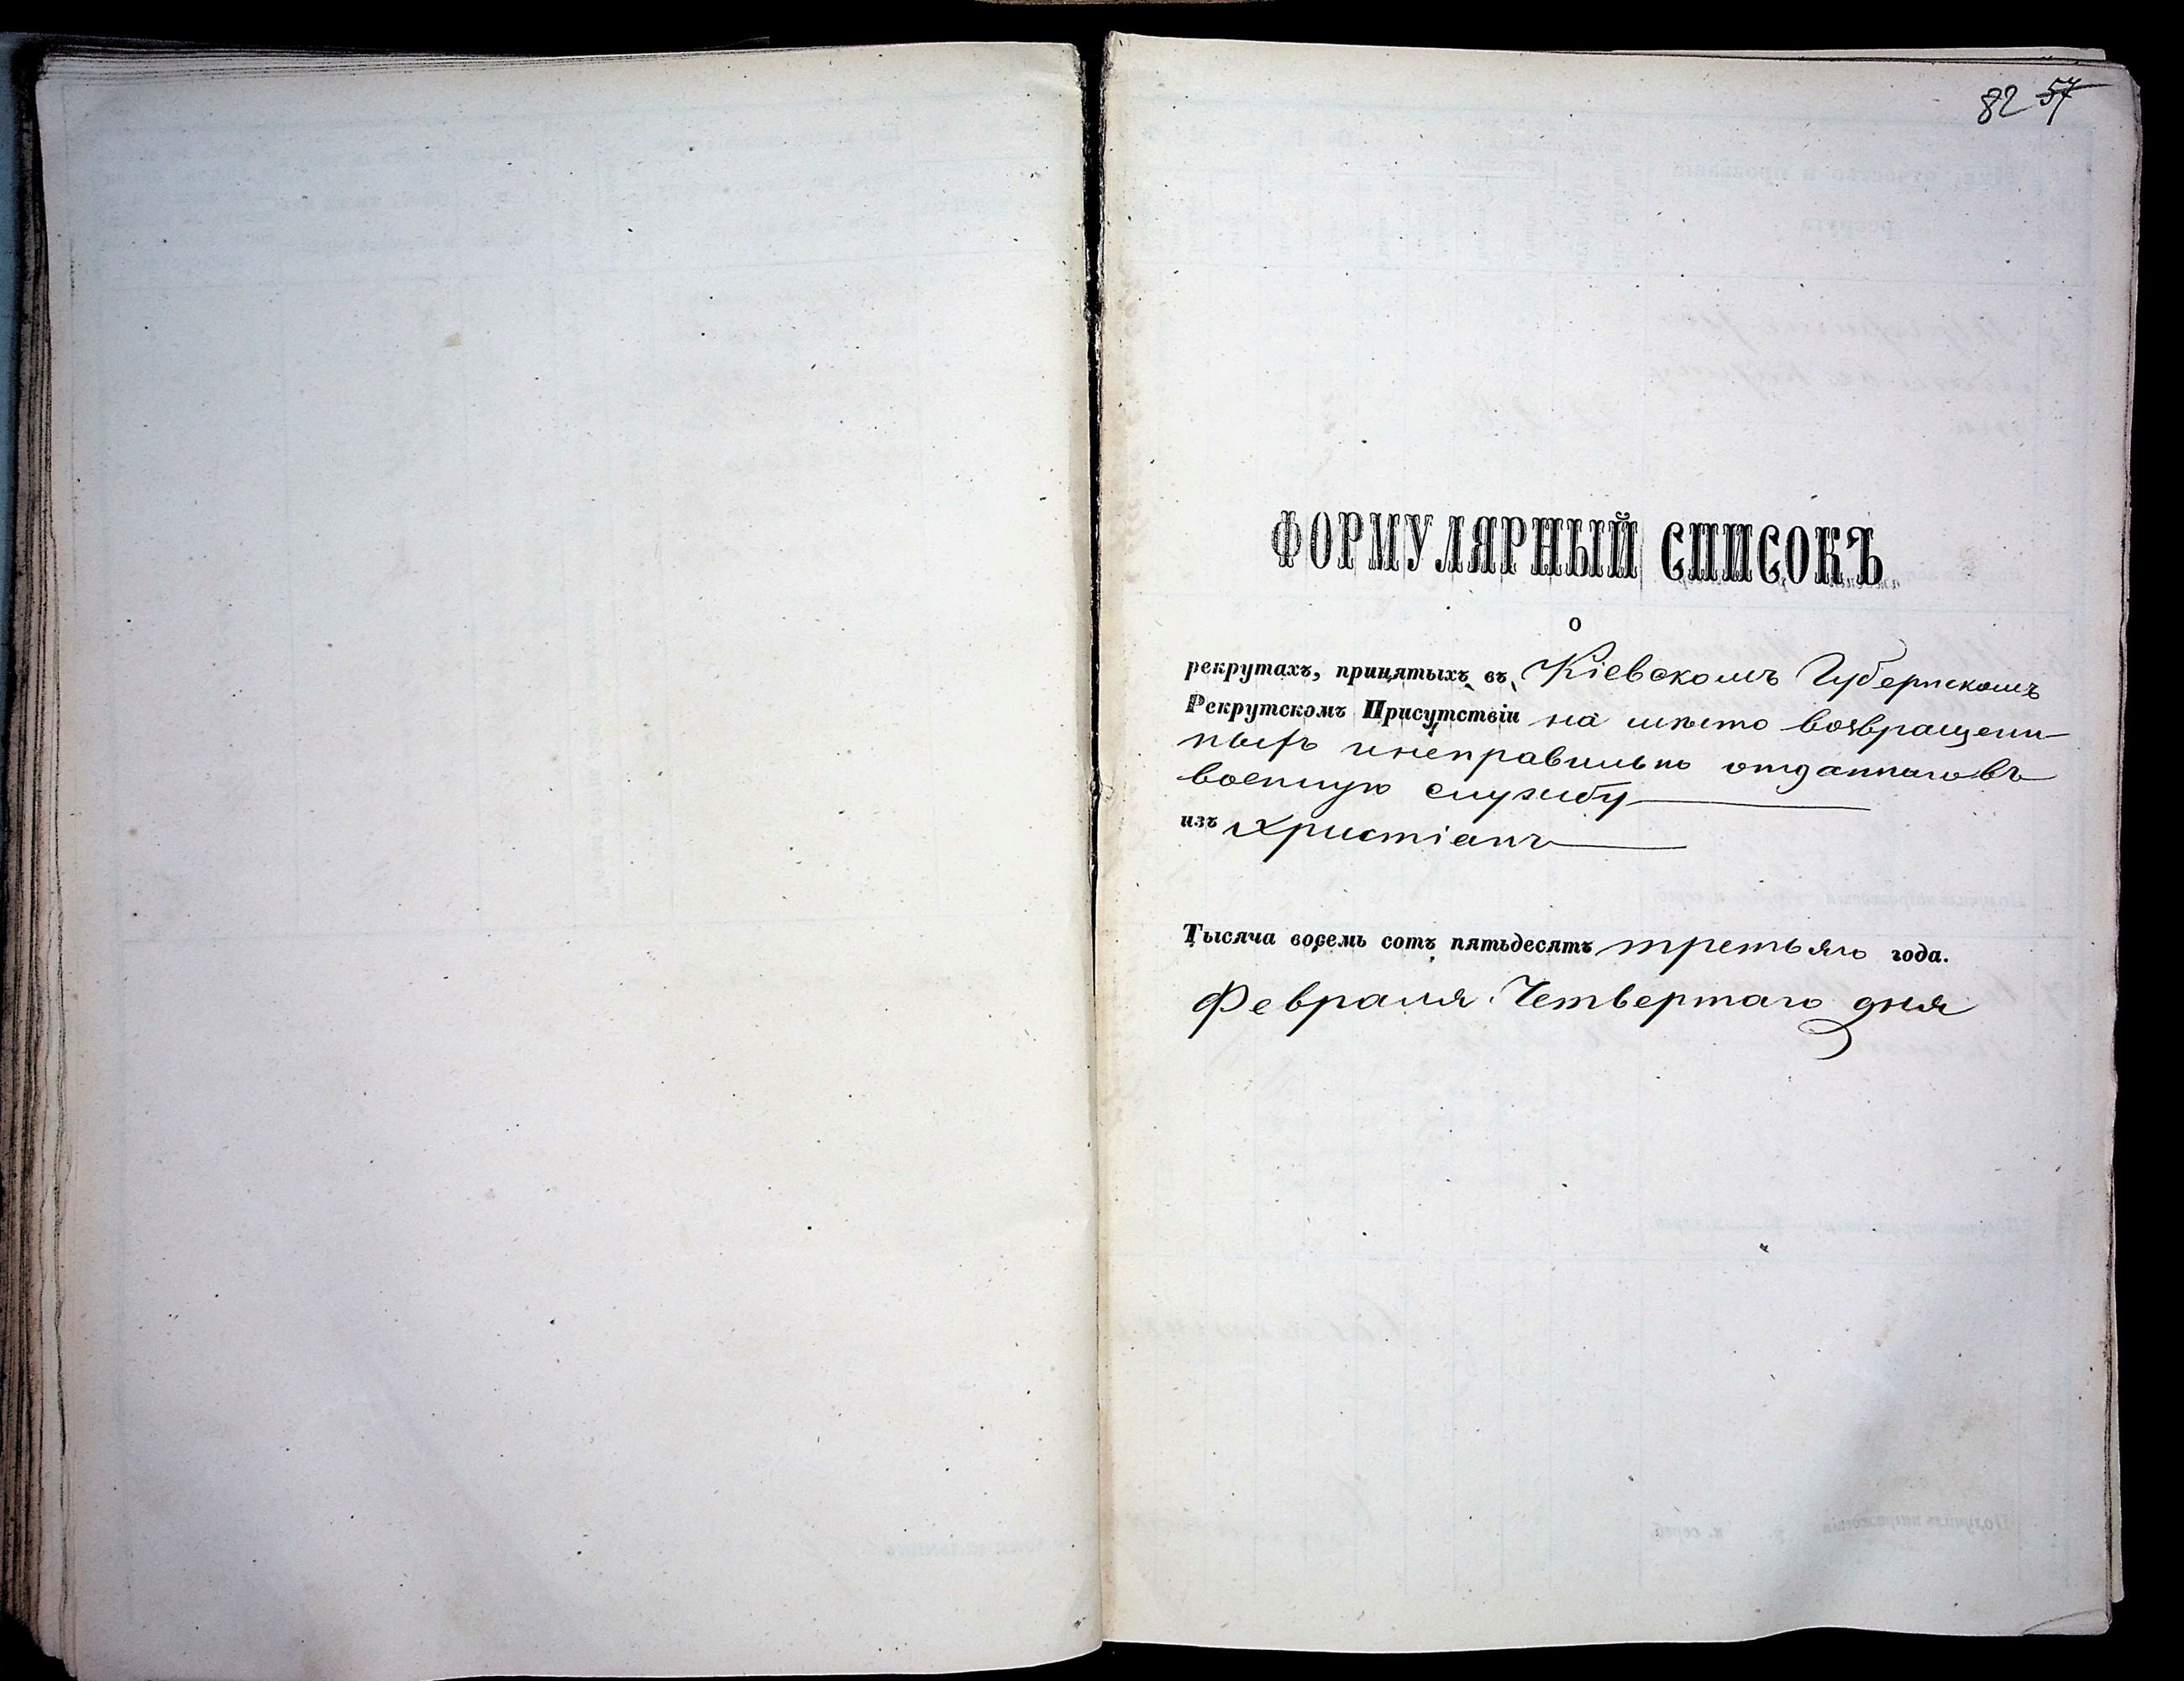 82 57
ФОРМУЛЯРНЫЙ СПИСОКЪ
о
рекрутахъ, принятыхъ въ Кіевскомъ Губернскомъ
Рекрутскомъ Присутствіи на мѣсто возвращен-
ныхъ инеправильно отданныхъ въ
военную службу
изъ Христіанъ
Тысяча восемь сотъ пятьдесятъ третьяго года.
Февраля Четвертаго дня